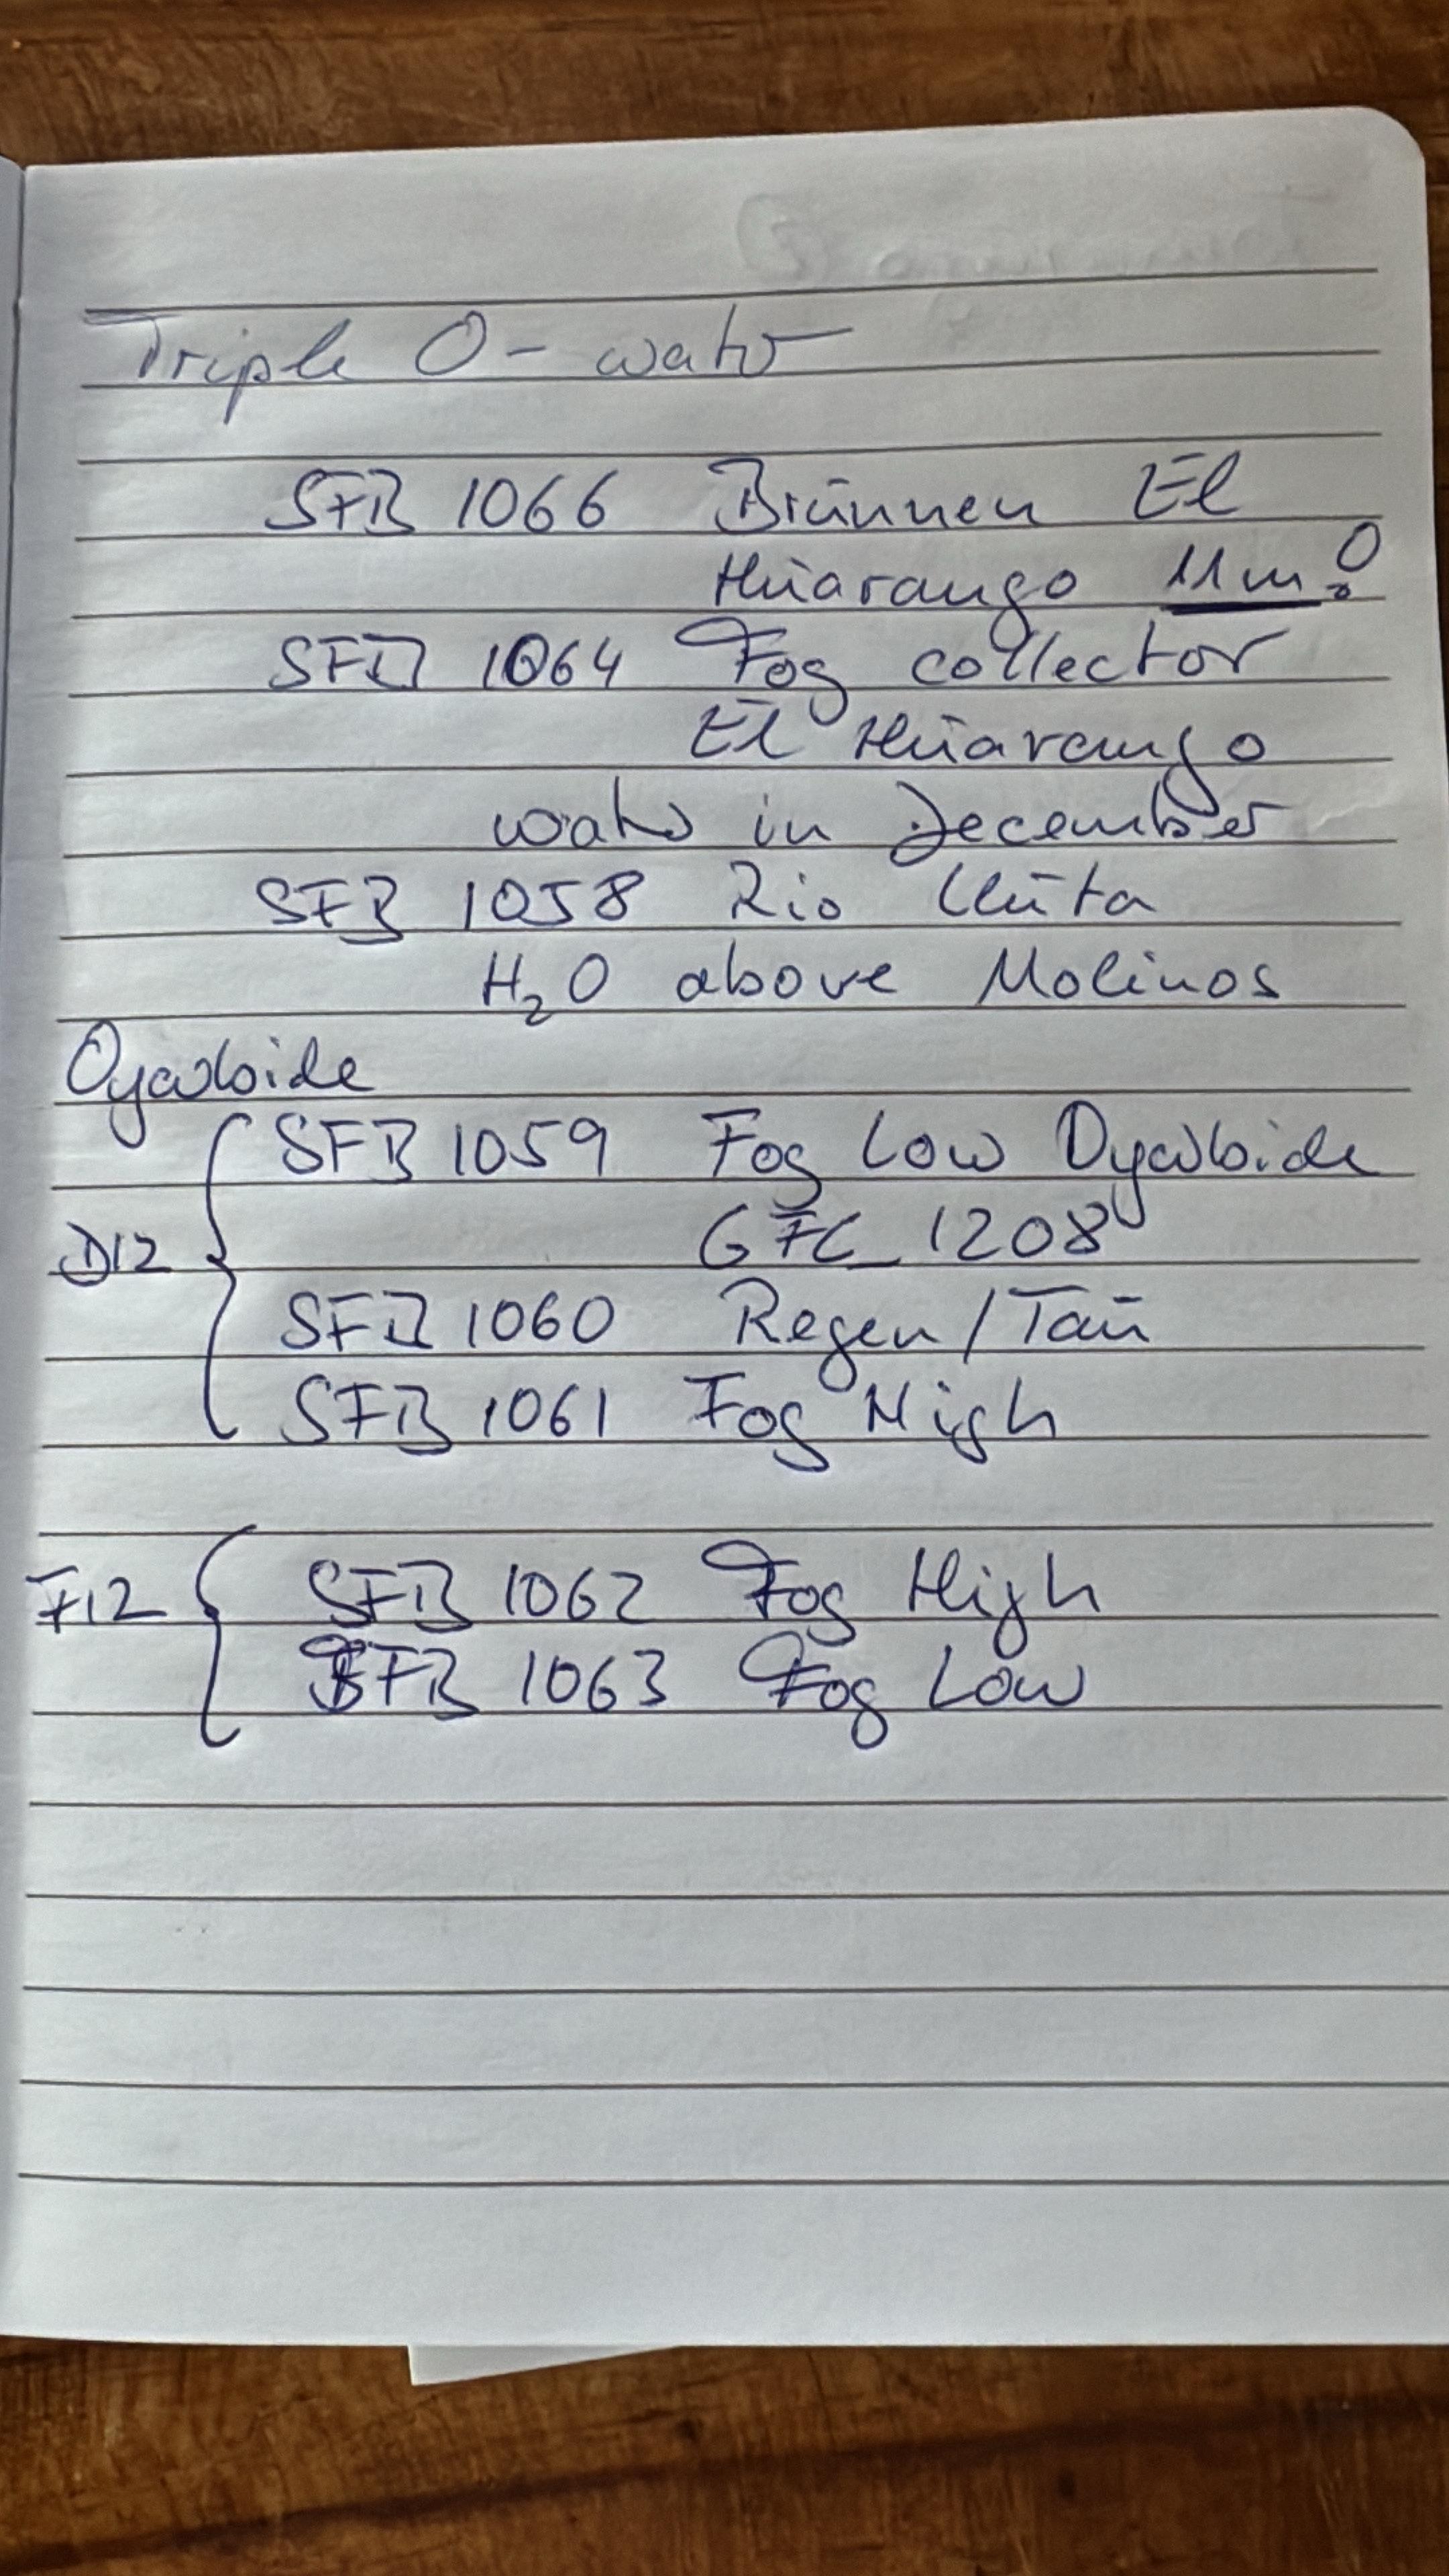 Triple O - water
SFB 1066 Brunnen El
Huarango 11m
SFB 1064 Fog collector
El Huarango
water in December
SFB 1058 Rio Lluta
H₂O above Molinos
Oyarbide
SFB 1059 Fog Low Oyarbide
GFC_1208
D12
SFB 1060 Regen/Tau
SFB 1061 Fog High
F12 SFB 1062 Fog High
SFB 1063 Fog Low